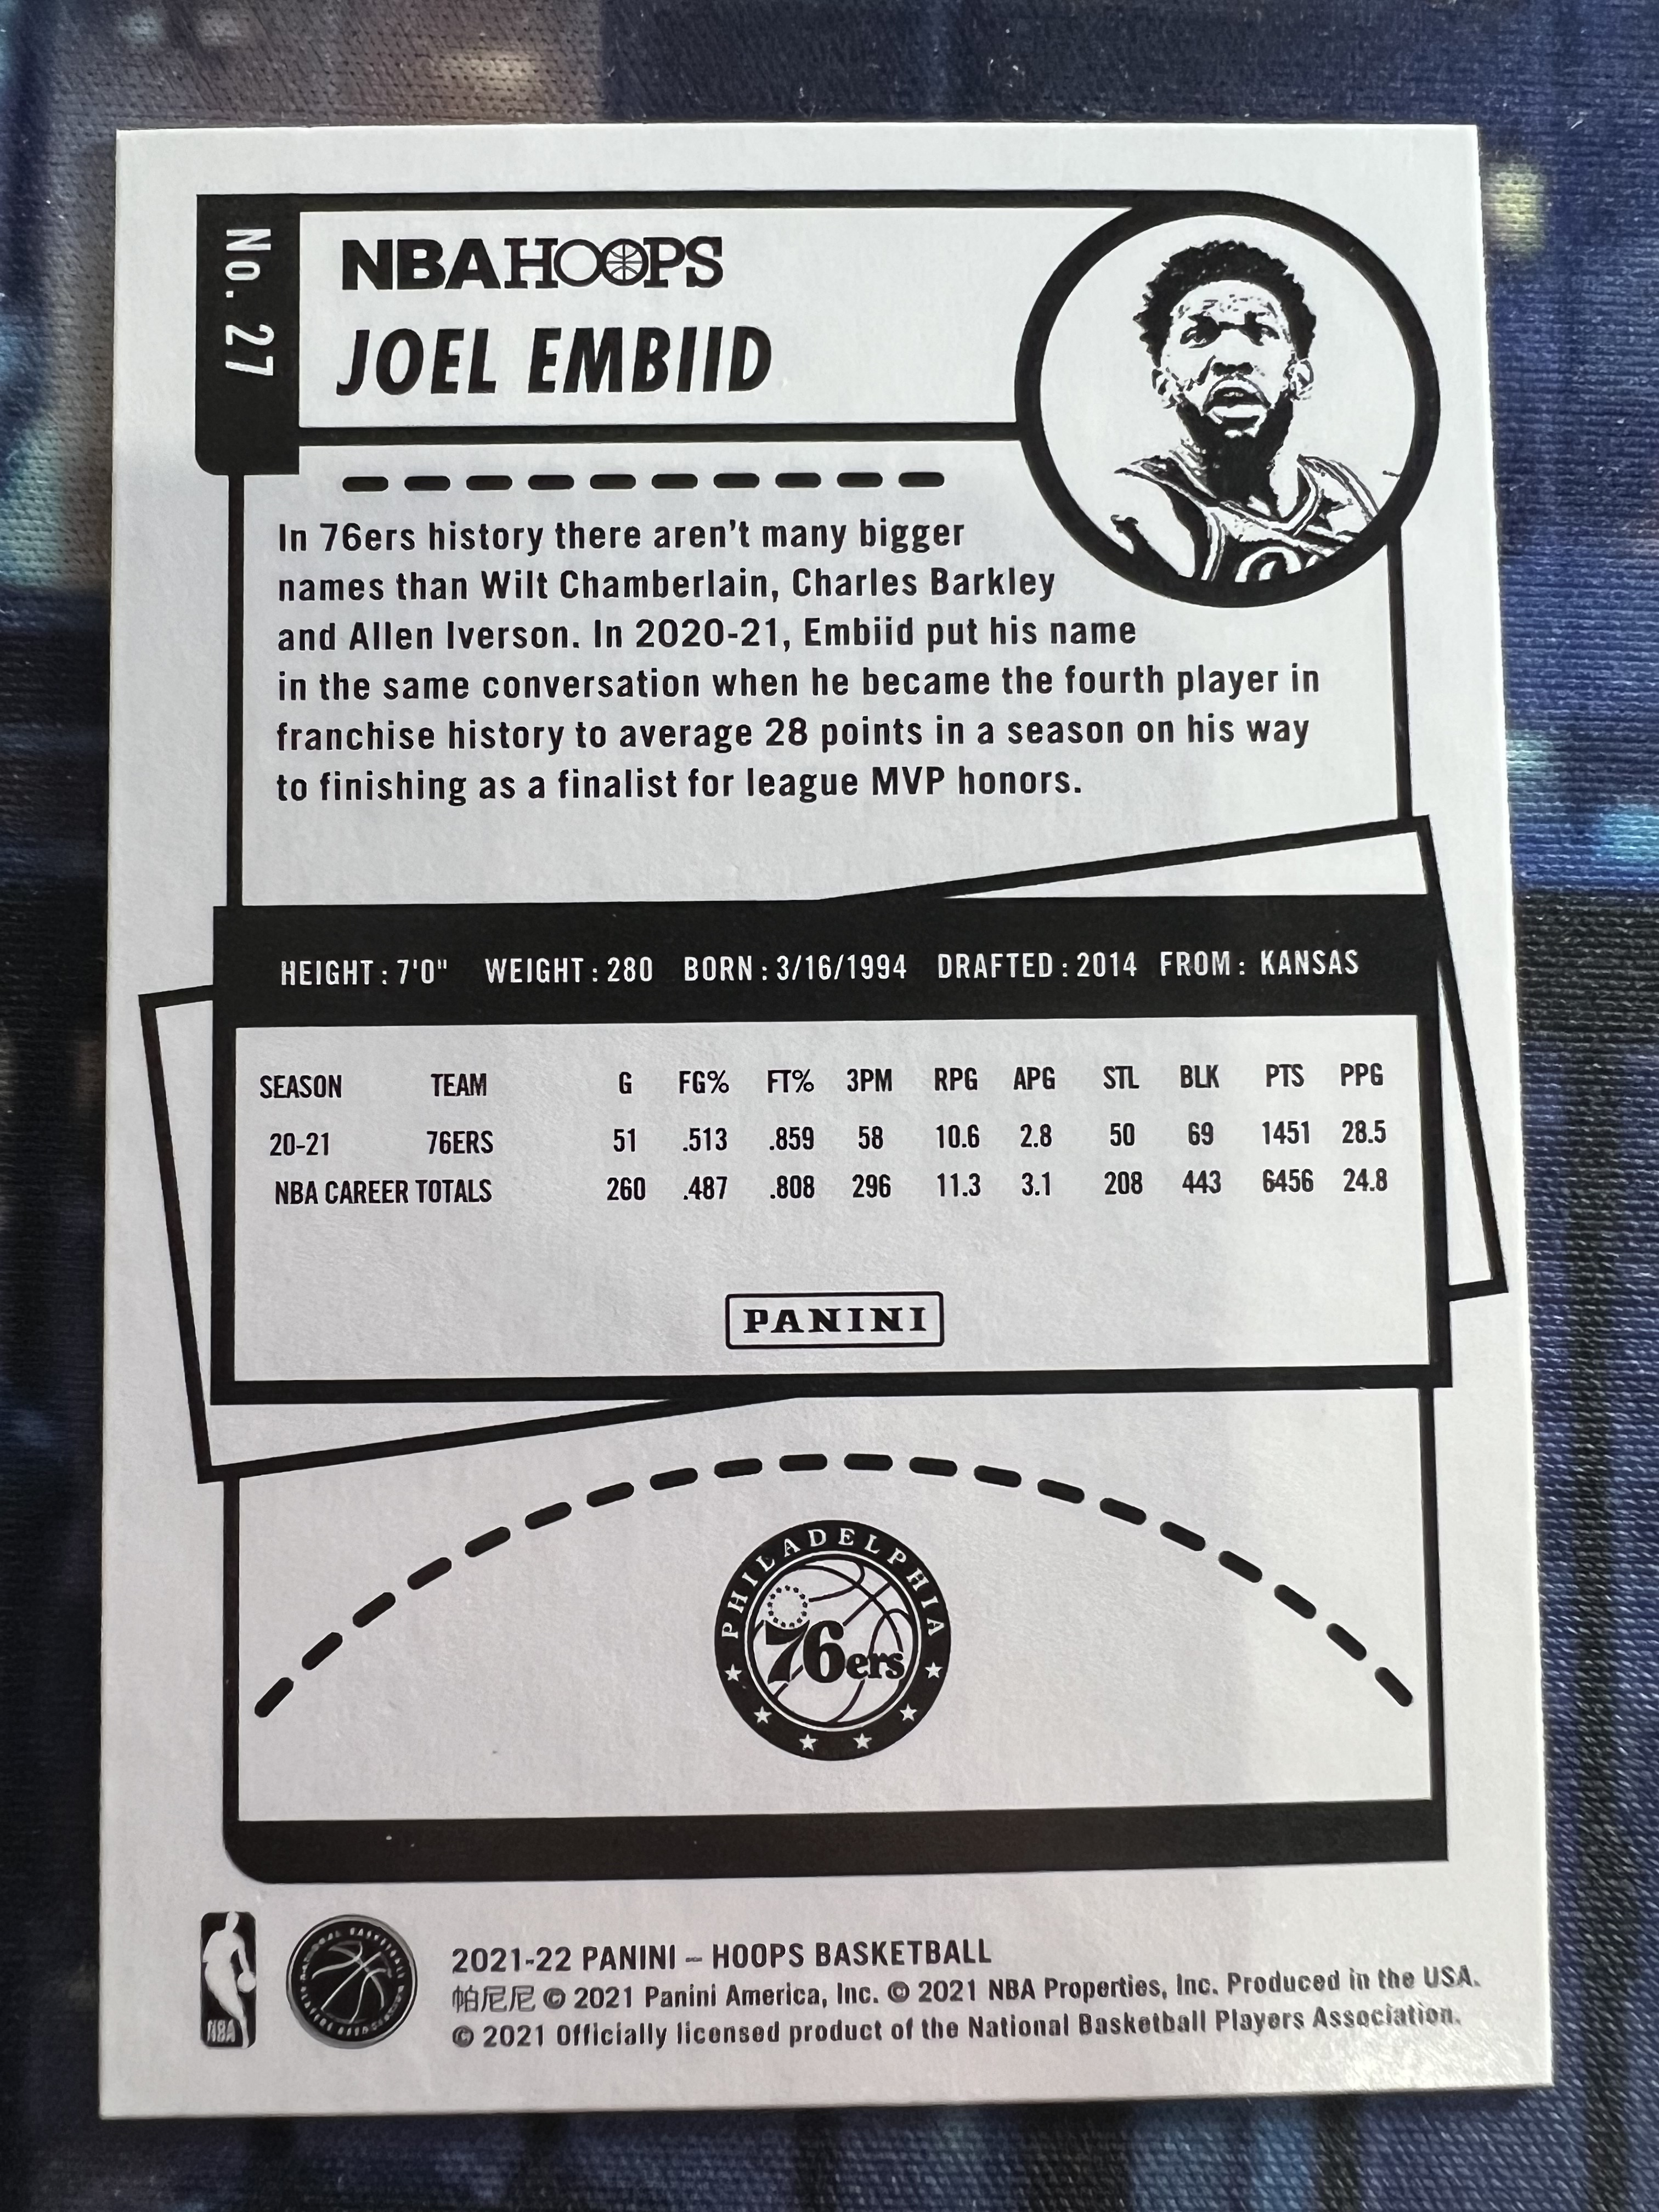 No. 27
NBA HOOPS
JOEL EMBIID
In 76ers history there aren't many bigger
names than Wilt Chamberlain, Charles Barkley
and Allen Iverson. In 2020-21, Embiid put his name
in the same conversation when he became the fourth player in
franchise history to average 28 points in a season on his way
to finishing as a finalist for league MVP honors.
HEIGHT: 7'0" WEIGHT: 280 BORN: 3/16/1994 DRAFTED: 2014 FROM: KANSAS
SEASON TEAM G FG% FT% 3PM RPG APG STL BLK PTS PPG
20-21 76ERS 51 .513 .859 58 10.6 2.8 50 69 1451 28.5
NBA CAREER TOTALS 260 .487 .808 296 11.3 3.1 208 443 6456 24.8
PANINI
PHILADELPHIA
76ers
NBA
2021-22 PANINI – HOOPS BASKETBALL
帕尼尼 © 2021 Panini America, Inc. © 2021 NBA Properties, Inc. Produced in the USA.
© 2021 Officially licensed product of the National Basketball Players Association.